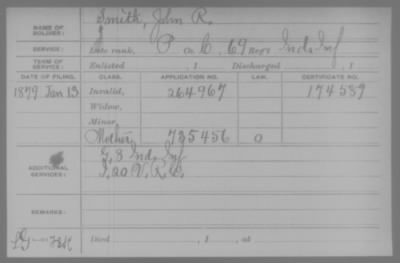 NAME OF SOLDIER: Smith, John R.
SERVICE: Late rank, P Co. C, 69 Reg't Ind. Inf
TERM OF SERVICE: Enlisted , 1 Discharged , 1
DATE OF FILING. CLASS. APPLICATION NO. LAW. CERTIFICATE NO.
1879 Jan 13 Invalid, 264967 174589
Widow,
Minor,
Mother, 735456 O
ADDITIONAL SERVICES: G, 8 Ind. Inf
I, 20 V. R. C.
REMARKS:
Died , 1 , at